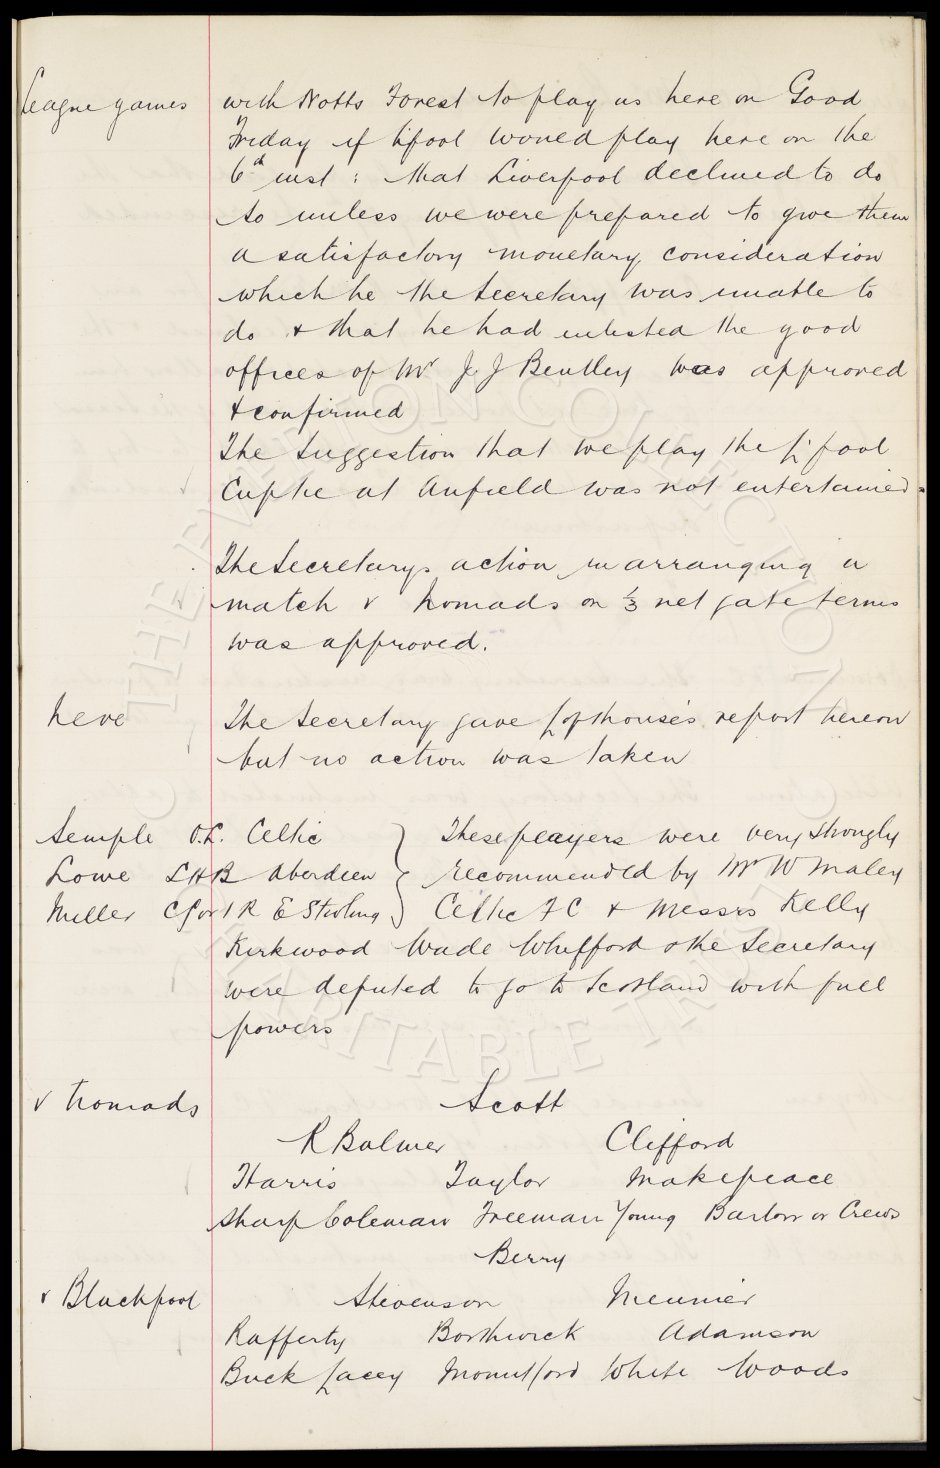 League games
with Notts Forest to play us here on Good
Friday if L'pool would play here on the
6th inst : that Liverpool declined to do
so unless we were prepared to give them
a satisfactory monetary consideration
which he the Secretary was unable to
do & that he had enlisted the good
offices of Mr J. J Bentley was approved
& confirmed
The Suggestion that we play the L'pool
Cuptie at Anfield was not entertained.
The Secretarys action in arranging a
match v Nomads on 1/3 net gate terms
was approved.
here
The Secretary gave Lofthouse's report hereon
but no action was taken
Semple O.L. Celtic } These players were very strongly
Lowe LHB Aberdeen } recommended by Mr W Maley
Miller C f or I R E Stirling } Celtic F C & Messrs Kelly
Kirkwood Wade Whifford & the Secretary
were deputed to go to Scotland with full
powers
v Nomads
Scott
R Balmer Clifford
Harris Taylor Makepeace
Sharp Coleman Freeman Young Barlow or Crews
Berry
v Blackpool
Stevenson Meunier
Rafferty Borthwick Adamson
Buck Lacey Mountford White Woods
THE EVERTON COLLECTION
CHARITABLE TRUST